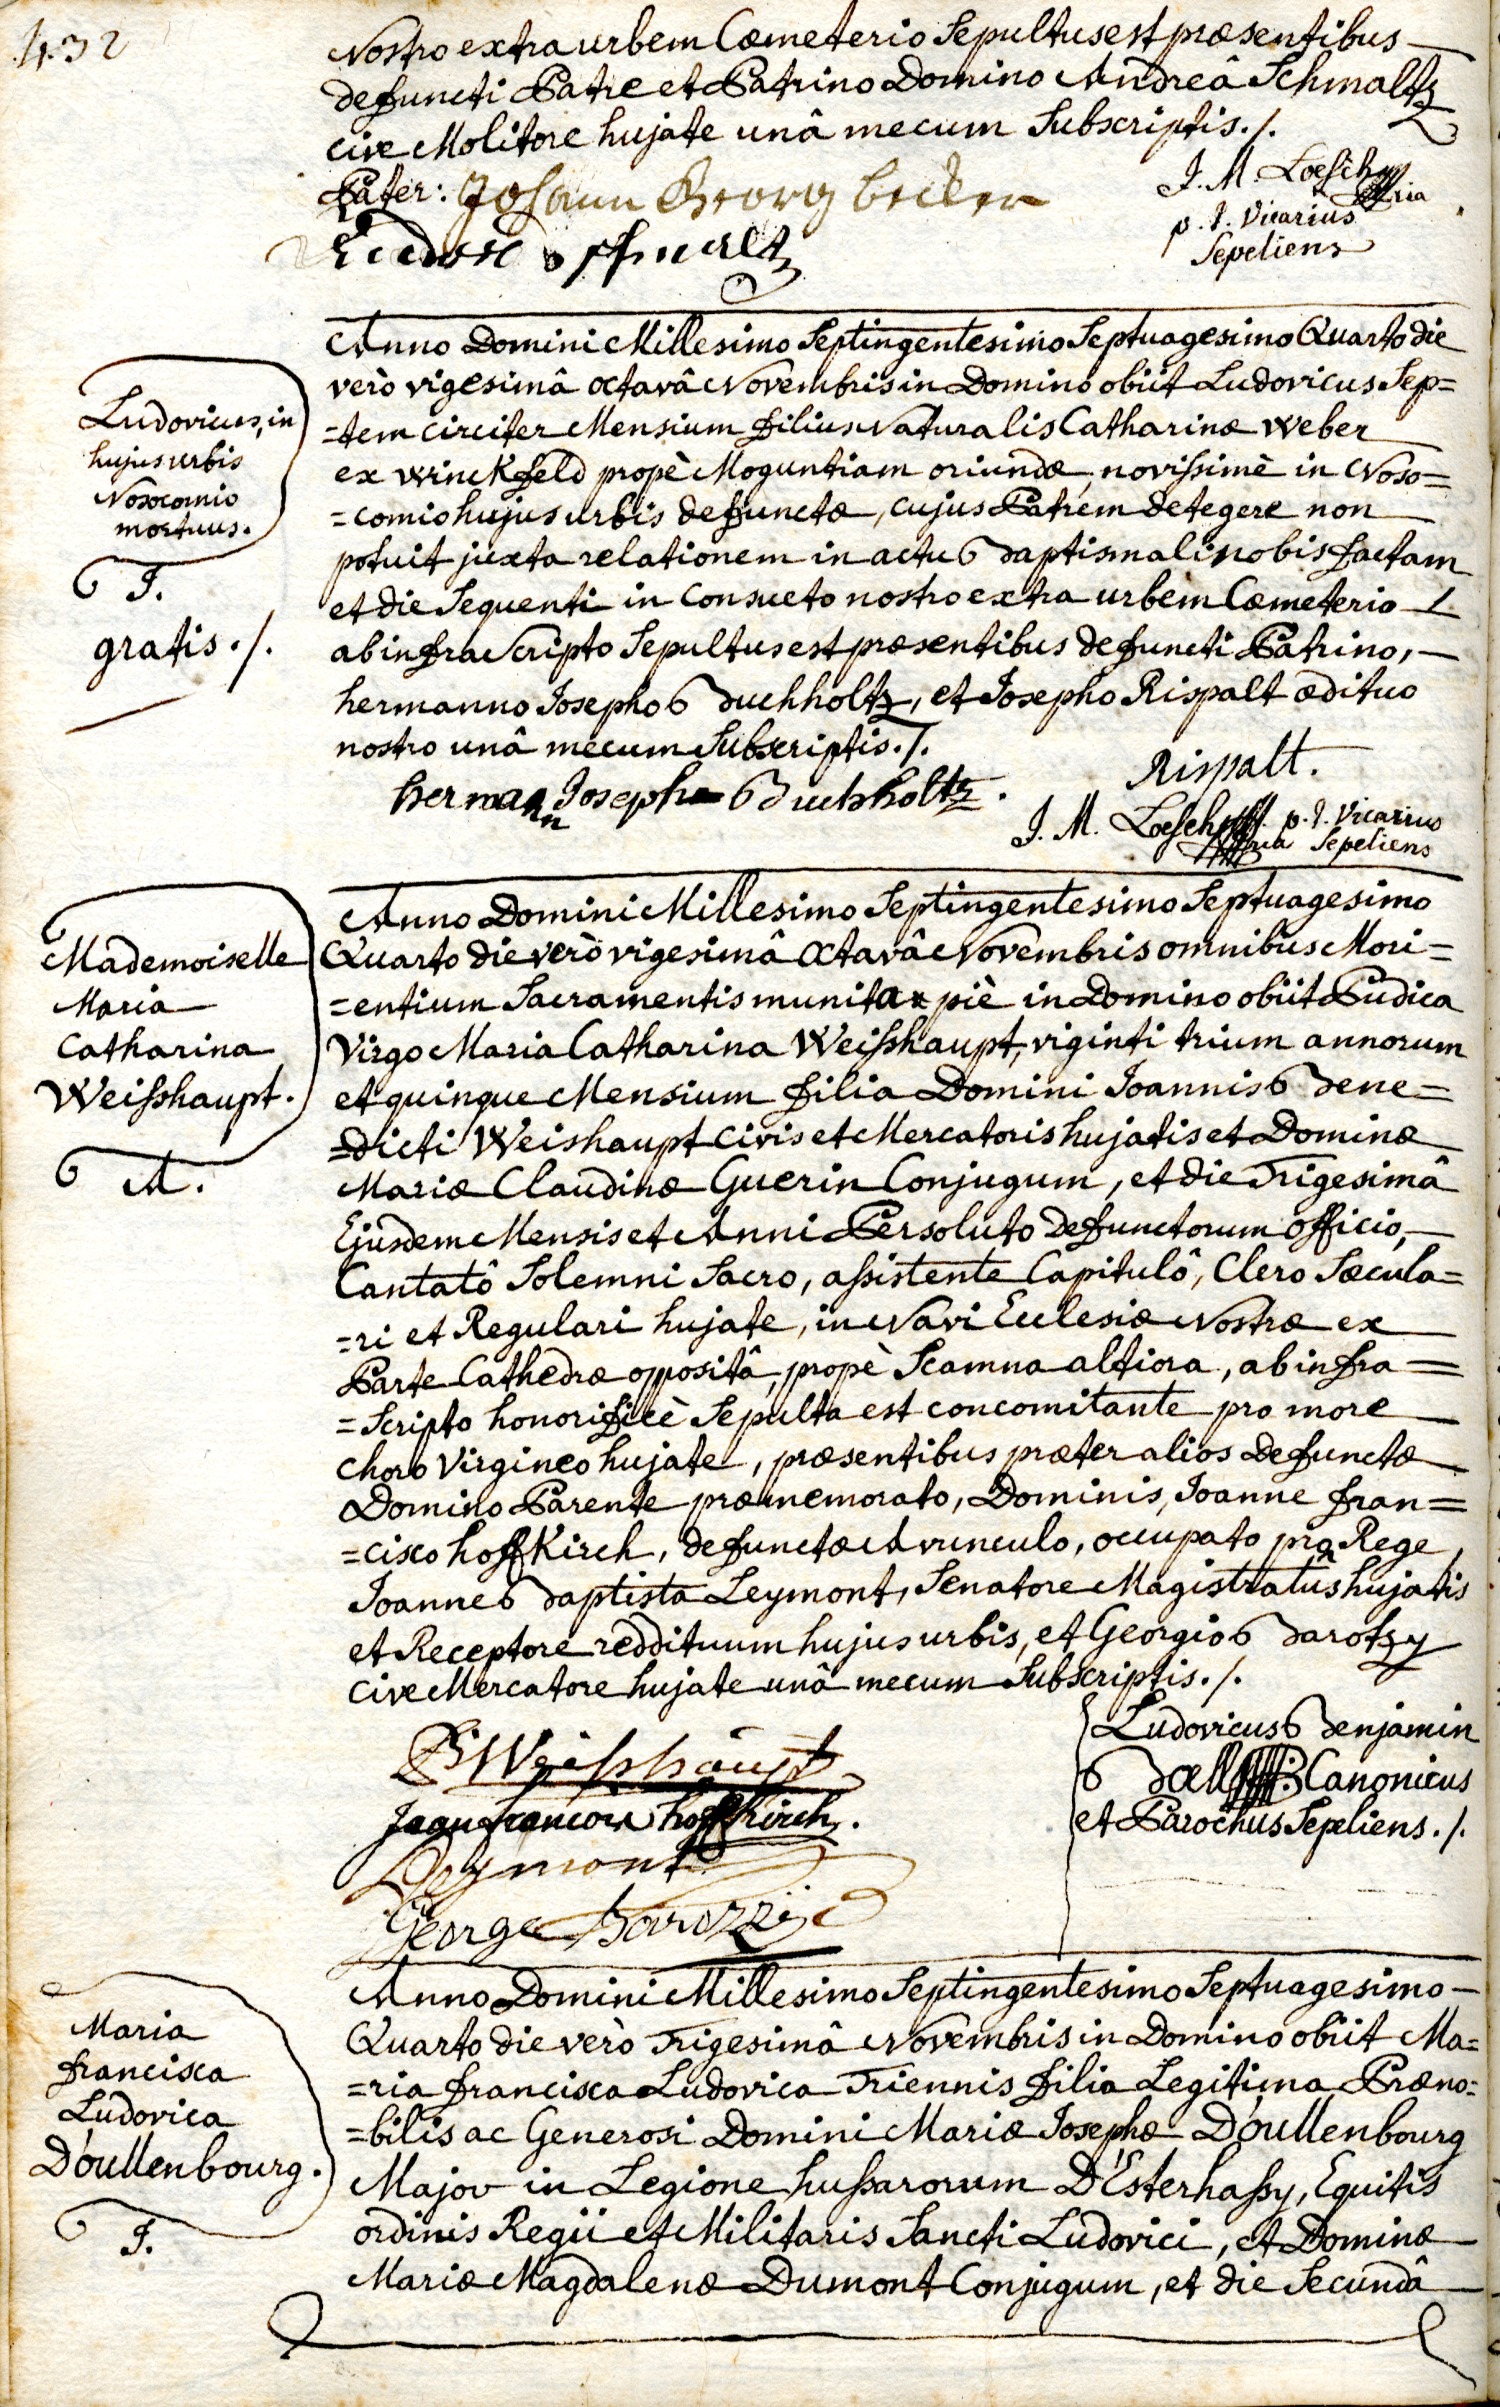 432
Nostro extra urbem Cœmeterio Sepultus est præsentibus
defuncti Patre et Patrino Domino Andreâ Schmaltz
cive Molitore hujate unâ mecum Subscriptis ./.
Pater: Johann Georg becker
J. M. Loesch
p. t. Vicarius
Sepeliens
Anno Domini Millesimo Septingentesimo Septuagesimo Quarto die
verò vigesimâ octavâ Novembris in Domino obiit Ludovicus Sep=
=tem circiter Mensium filius Naturalis Catharinæ Weber
ex Winckfeld propè Moguntiam oriundæ, novissimè in Noso=
=comio hujus urbis defunctæ, cujus Patrem detegere non
potuit juxta relationem in actu Baptismali nobis factam
et die Sequenti in Consueto nostro extra urbem Cœmeterio
ab infra Scripto Sepultus est præsentibus defuncti Patrino,
hermanno Josepho Buchholtz, et Josepho Rispalt ædituo
nostro unâ mecum Subscriptis ./.
Ludovicus, in
hujus urbis
Nosocomio
mortuus.
J.
gratis ./.
herman Joseph Buchholtz.
Rispalt.
J. M. Loesch p. t. Vicarius
Sepeliens
Anno Domini Millesimo Septingentesimo Septuagesimo
Quarto die verò vigesimâ Octavâ Novembris omnibus Mori=
=entium Sacramentis munita piè in Domino obiit Pudica
Virgo Maria Catharina Weisshaupt, viginti trium annorum
et quinque Mensium filia Domini Joannis Bene=
=dicti Weishaupt Civis et Mercatoris hujatis et Dominæ
Mariæ Claudinæ Guerin Conjugum, et die Trigesimâ
Ejusdem Mensis et Anni Persoluto Defunctorum officio,
Cantatô Solemni Sacro, assistente Capitulô, Clero Sæcula=
=ri et Regulari hujate, in Navi Ecclesiæ Nostræ ex
Parte Cathedræ oppositâ, propè Scamna altiora, ab infra=
=Scripto honorificè Sepulta est concomitante pro more
Choro Virgineo hujate, præsentibus præter alios Defunctæ
Domino Parente præmemorato, Dominis, Joanne fran=
=cisco hoffkirch, defunctæ Avunculo, occupato pro Rege,
Joanne Baptista Leymont, Senatore Magistratus hujatis
et Receptore reddituum hujus urbis, et Georgio Barotzy
Cive Mercatore hujate unâ mecum Subscriptis ./.
Mademoiselle
Maria
Catharina
Weisshaupt.
A.
B Weisshaupt
Jean francois hoffkirch.
Leymont
George Barozzi
Ludovicus Benjamin
Bœll Canonicus
et Parochus Sepeliens ./.
Anno Domini Millesimo Septingentesimo Septuagesimo
Quarto die verò Trigesimâ Novembris in Domino obiit Ma=
=ria francisca Ludovica Triennis filia Legitima Præno=
=bilis ac Generosi Domini Mariæ Josephæ D'oullenbourg
Major in Legione hussarorum D'Esterhassy, Equitis
ordinis Regii et Militaris Sancti Ludovici, et Dominæ
Mariæ Magdalenæ Dumont Conjugum, et die Secundâ
Maria
francisca
Ludovica
D'oullenbourg.
J.